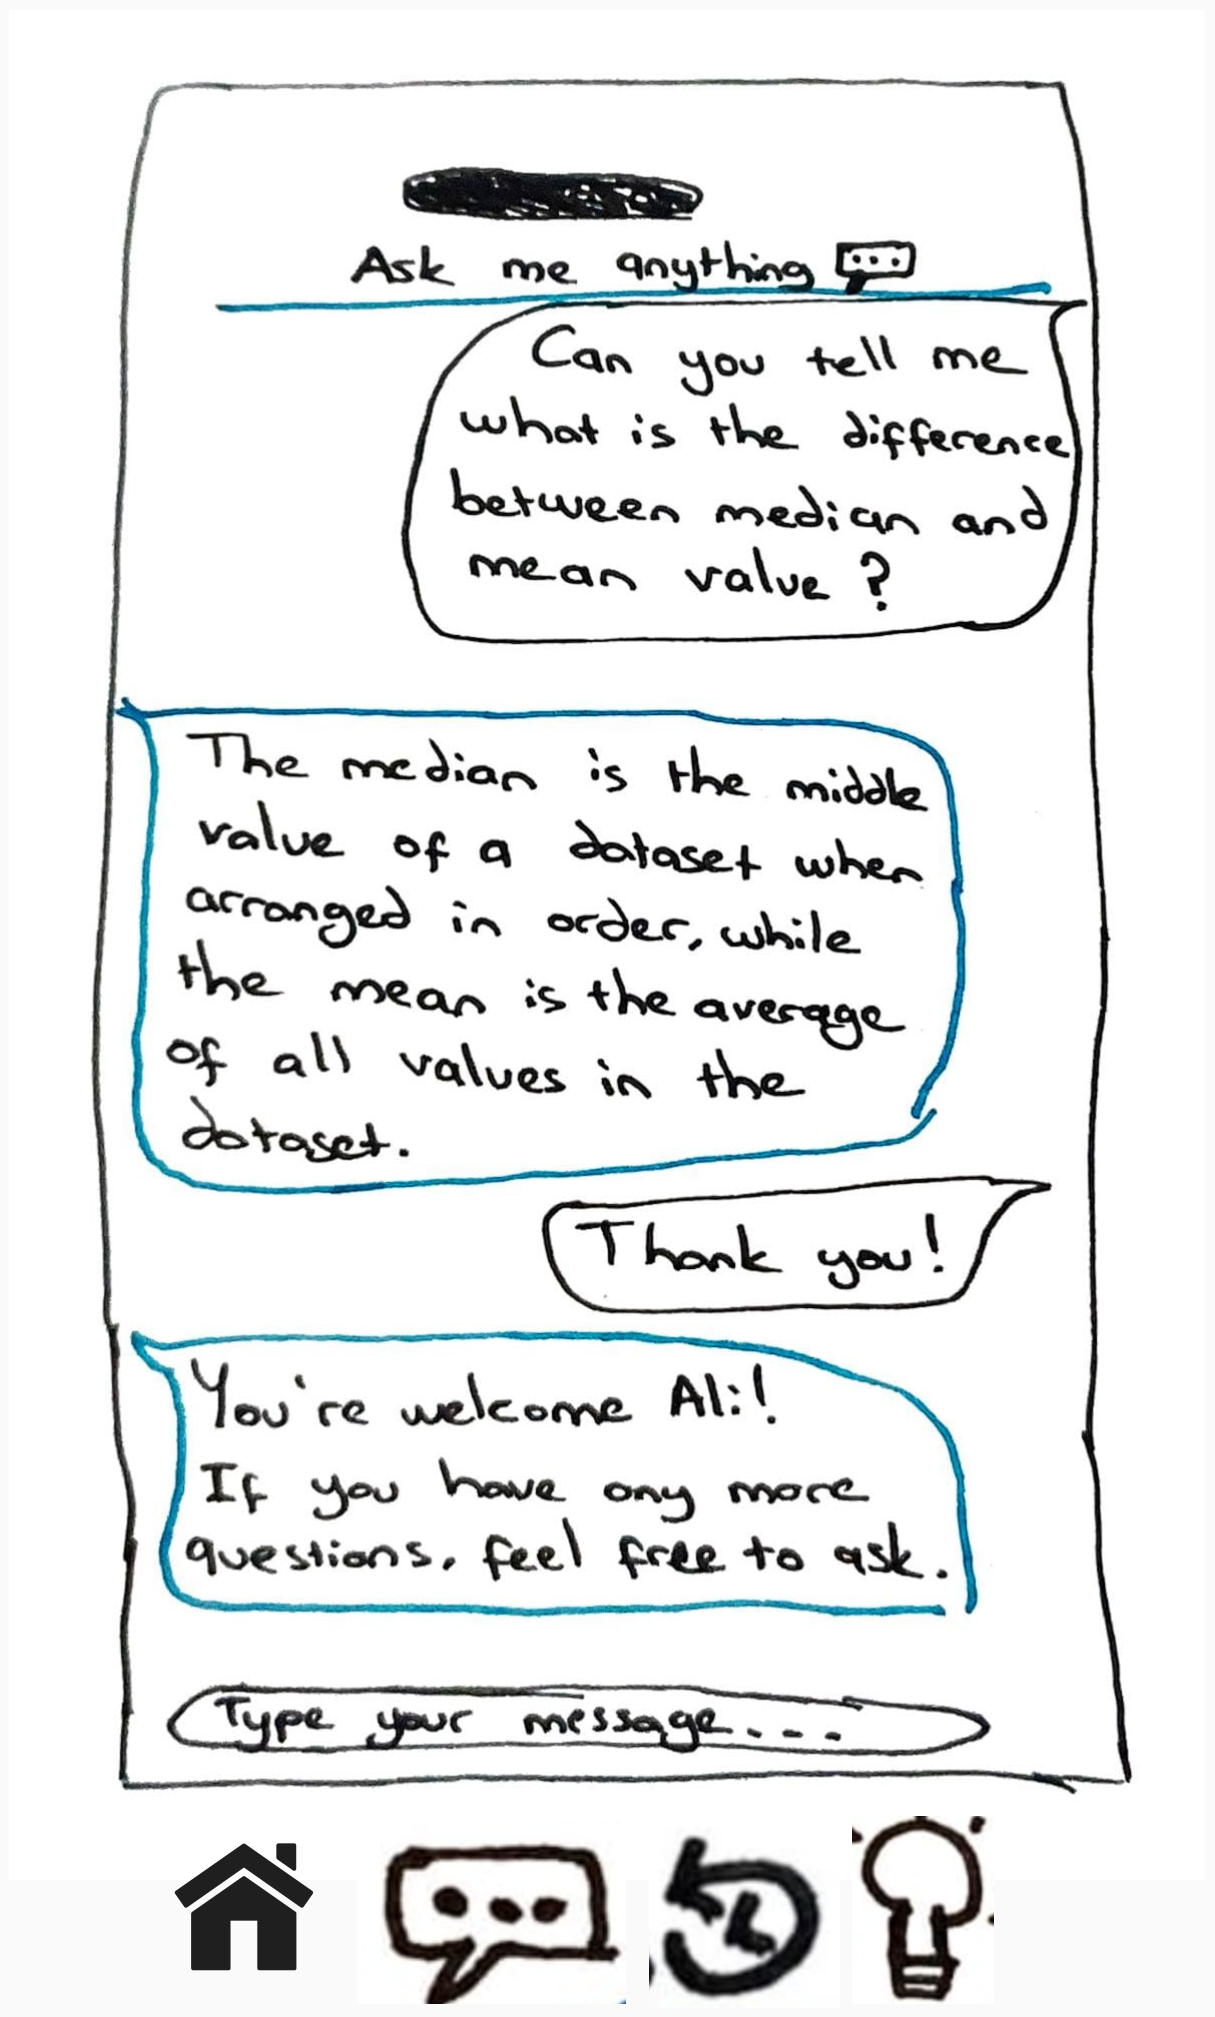 Ask me anything
Can you tell me
what is the difference
between median and
mean value ?
The median is the middle
value of a dataset when
arranged in order, while
the mean is the average
of all values in the
dataset.
Thank you!
You're welcome Ali!
If you have any more
questions, feel free to ask.
Type your message...